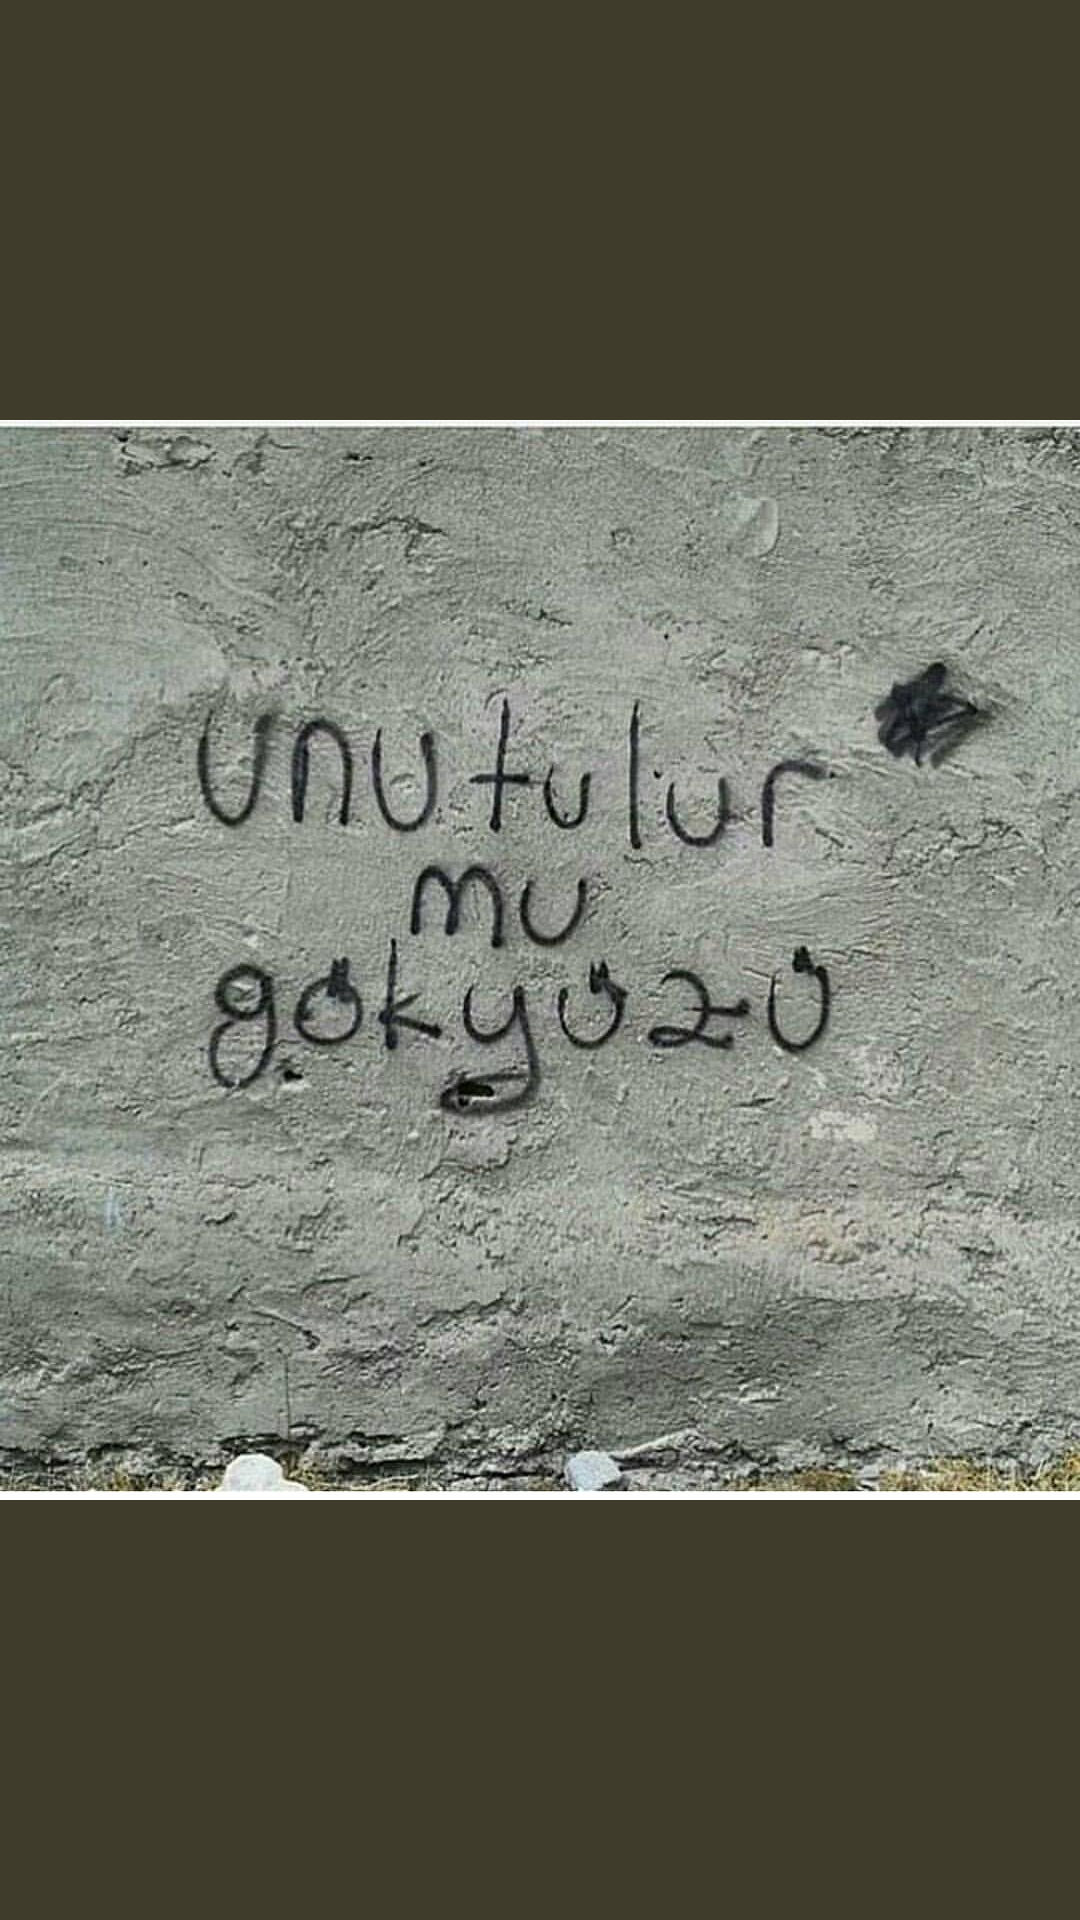 unutulur
mu
gökyüzü